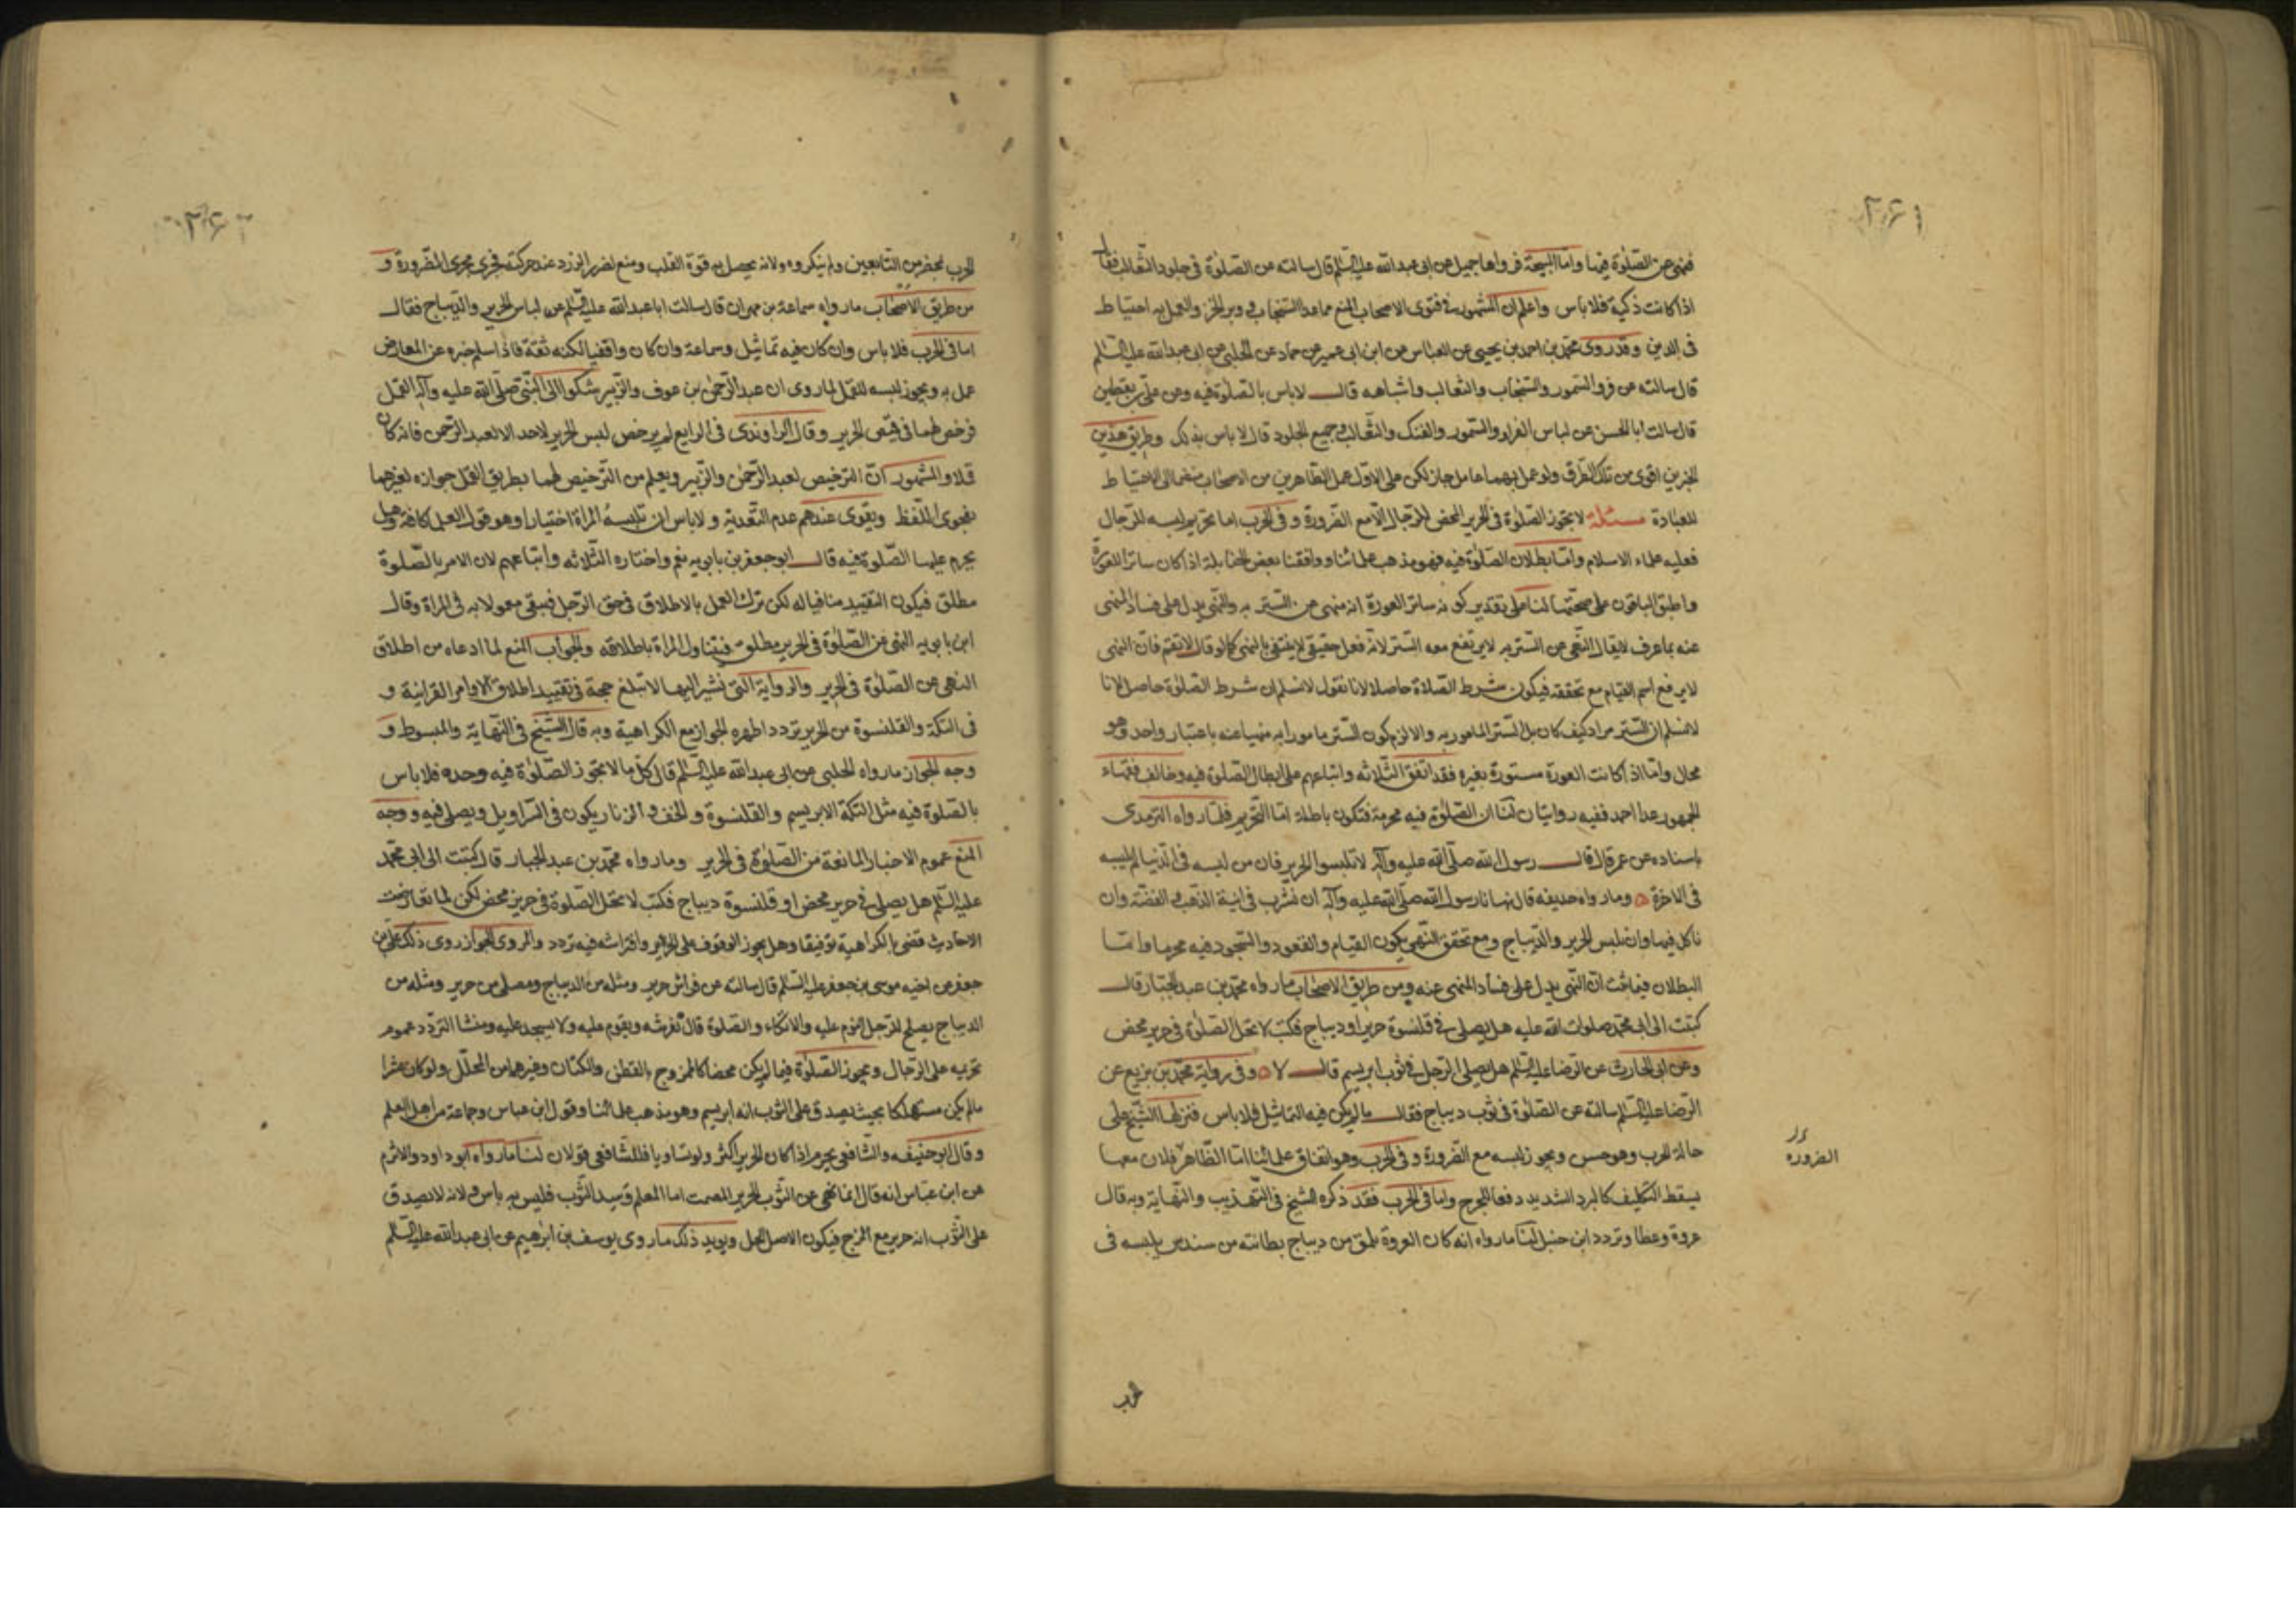 ٢٤١
فنهى عن الصّلوة فيها وامّا المبيحة فرواها جميل عن ابى عبدالله عليه السّلم قال سالته عن الصّلوة فى جلود الثّعالب فقال
اذا كانت ذكية فلا باس واعلم ان المشهور فى فتوى الاصحاب المنع مما عدا السّنجاب و وبر الخز والعمل به احتياط
فى الدين وقد روى محمّد بن احمد بن يحيى عن العبّاس عن ابن ابى عمير عن حماد عن الحلبى عن ابى عبدالله عليه السّلم
قال سالته عن فرو السّمور والسّنجاب والثعالب واشباهه قال لا باس بالصّلوة فيه وعن علىّ بن يقطين
قال سالت ابا الحسن عن لباس الفراء والسّمور والفنك والثّعالب وجميع الجلود قال لا باس بذلك وطريق هذين
الخبرين اقوى من تلك الطّرق ولو عمل بهما عامل جاز لكن على الاوّل عمل الظّاهرين من الاصحاب منضما الى الاحتياط
للعبادة مسئلة لا تجوز الصّلوة فى الحرير المحض للرّجال الّا مع الضّرورة و فى الحرب اما تحريم لبسه للرّجال
فعليه علماء الاسلام وامّا بطلان الصّلوة فيه فهو مذهب علمائنا و وافقنا بعض الحنابلة اذا كان ساترا للعورة
واطبق الباقون على صحّتها لنا على تقدير كونه ساتر العورة انه منهى عن السّتر به والنّهى يدل على فساد المنهى
عنه بما عرف لا يقال النّهى عن السّتر به لا يرتفع معه السّتر لانّه فعل حقيقى لا ينتفى بالنهى كما لو قال لا تقم فانّ النهى
لا يرفع اسم القيام مع تحققه فيكون شرط الصّلاة حاصلا لانا نقول لا نسلم ان شرط الصّلوة حاصل لانا
لا نسلم ان السّتر مراد كيف كان بل السّتر المامور به والا لزم كون السّتر مامورا به منهيا عنه باعتبار واحد وهو
محال وامّا اذا كانت العورة مستورة بغيره فقد اتفق الثّلاثه واتباعهم على ابطال الصّلوة فيه وخالف فقهاء
الجمهور عدا احمد ففيه روايتان لنا ان الصّلوة فيه محرمة فتكون باطلة امّا التّحريم فلما رواه الترمدى
باسناده عن عمر قال قال رسول الله صلّى الله عليه وآله لا تلبسوا الحرير فان من لبسه فى الدّنيا لم يلبسه
فى الاخرة ه وما رواه حذيفه قال نهانا رسول الله صلّى الله عليه وآله ان نشرب فى انية الذّهب و الفضّة وان
ناكل فيها وان نلبس الحرير والدّيباج ومع تحقق النّهى يكون القيام والقعود والسّجود فيه محرما وامّا
البطلان فيما ثبت انّ النّهى يدل على فساد المنهى عنه ومن طريق الاصحاب ما رواه محمّد بن عبد الجبّار قال
كتبت الى ابى محمّد صلوات الله عليه هل يصلى فى قلنسوة حرير او ديباج فكتب لا تحل الصّلوة فى حرير محض
وعن ابى الحارث عن الرّضا عليه السّلم هل يصلى الرّجل فى ثوب ابريسم قال لا ه وفى رواية محمّد بن بزيع عن
الرّضا عليه السّلم سالته عن الصّلوة فى ثوب ديباج فقال ما لم يكن فيه التماثيل فلا باس فنزلها الشّيخ على
حالة الحرب وهو حسن ويجوز لبسه مع الضّرورة و فى الحرب وهو اتفاق علمائنا امّا الظّاهر فلان معها
الضروره
يسقط التكليف كالبرد الشديد دفعا للحرج واما فى الحرب فقد ذكره الشيخ فى التّهذيب والنّهاية وبه قال
عروة وعطا وتردد ابن حنبل لنا ما رواه انه كان لعروة يلمق من ديباج بطانته من سندس يلبسه فى
حرب
٢٤٢
الحرب بمحضر من التّابعين ولم ينكروه ولانه يحصل به قوّة القلب ومنع لضرر الزرد عند حركته فجرى مجرى الضّرورة و
من طريق الاصحاب ما رواه سماعة بن مهران قال سالت ابا عبدالله عليه السّلم عن لباس الحرير والدّيباج فقال
اما فى الحرب فلا باس وان كان فيه تماثيل وسماعة وان كان واقفيا لكنه ثقة فاذا سلم خبره عن المعارض
عمل به ويجوز لبسه للقمل لما روى ان عبد الرّحمن بن عوف والزّبير شكوا الى النّبى صلّى الله عليه وآله القمل
فرخص لهما فى قميص الحرير وقال الراوندى فى الرابع لم يرخص لبس الحرير لاحد الا لعبد الرّحمن فانه كان
قملا والمشهور انّ الترخيص لعبد الرّحمن والزّبير ويعلم من التّرخيص لهما بطريق القمل جوازه لغيرهما
بفحوى اللّفظ ويقوى عندهم عدم التّعدية ولا باس ان تلبسه المراة اختيارا وهو قول العلماء كافة وهل
يحرم عليها الصّلوة فيه قال ابو جعفر بن بابويه نعم واختاره الثّلاثه واتباعهم لان الامر بالصّلوة
مطلق فيكون التقييد منافيا له لكن ترك العمل بالاطلاق فى حق الرّجل فيبقى معمولا به فى المراة وقال
ابن بابويه النهى عن الصّلوة فى الحرير مطلق فيتناول المراة باطلاقه والجواب المنع لما ادعاه من اطلاق
النهى عن الصّلوة فى الحرير والرواية التى نشير اليها لا تبلغ حجة فى تقييد اطلاق الاوامر القرانية و
فى التكة والقلنسوة من الحرير تردد اظهره الجواز مع الكراهية وبه قال الشّيخ فى النّهاية والمبسوط و
وجه الجواز ما رواه الحلبى عن ابى عبدالله عليه السّلم قال كلّ ما لا تجوز الصّلوة فيه وحده فلا باس
بالصّلوة فيه مثل التكة الابريسم والقلنسوة و الخف و الزنار يكون فى السّراويل ويصلى فيه ووجه
المنع عموم الاخبار المانعة من الصّلوة فى الحرير وما رواه محمّد بن عبد الجبار قال كتبت الى ابى محمّد
عليه السّلم هل يصلى فى حرير محض او قلنسوة ديباج فكتب لا تحل الصّلوة فى حرير محض لكن لما تعارضت
الاحاديث قضى بالكراهية توفيقا وهل يجوز الوقوف على الحرير وافتراشه فيه تردد والمروى الجواز روى ذلك علىّ بن
جعفر عن اخيه موسى بن جعفر عليه السّلم قال سالته عن فراش حرير ومثله من الديباج ومصلى من حرير ومثله من
الديباج يصلح للرّجل النّوم عليه والاتكاء والصّلوة قال تفرشه ويقوم عليه ولا يسجد عليه ومنشا التردّد عموم
تحريمه على الرّجال وتجوز الصّلوة فيما لم يكن محضا كالممزوج بالقطن والكتّان وغيرهما من المحلّل ولو كان عشرا
ما لم يكن مستهلكا بحيث يصدق على الثوب انه ابريسم وهو مذهب علمائنا وقول ابن عباس وجماعة من اهل العلم
وقال ابو حنيفه والشّافعى يحرم اذا كان الحرير اكثر ولو تساويا فللشّافعى قولان لنا ما رواه ابو داود والاثرم
عن ابن عبّاس انه قال انما نهى عن الثّوب الحرير المصمت اما المعلم و سيد الثّوب فليس به باس و لانه لا يصدق
على الثّوب انه حرير مع المزج فيكون الاصل الحل ويويد ذلك ما روى يوسف بن ابرهيم عن ابى عبدالله عليه السّلم